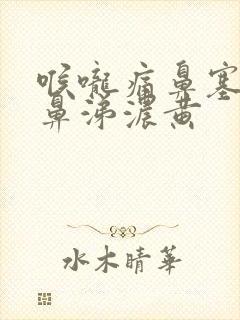 喉嚨痛鼻塞
鼻涕濃黄
水木晴華